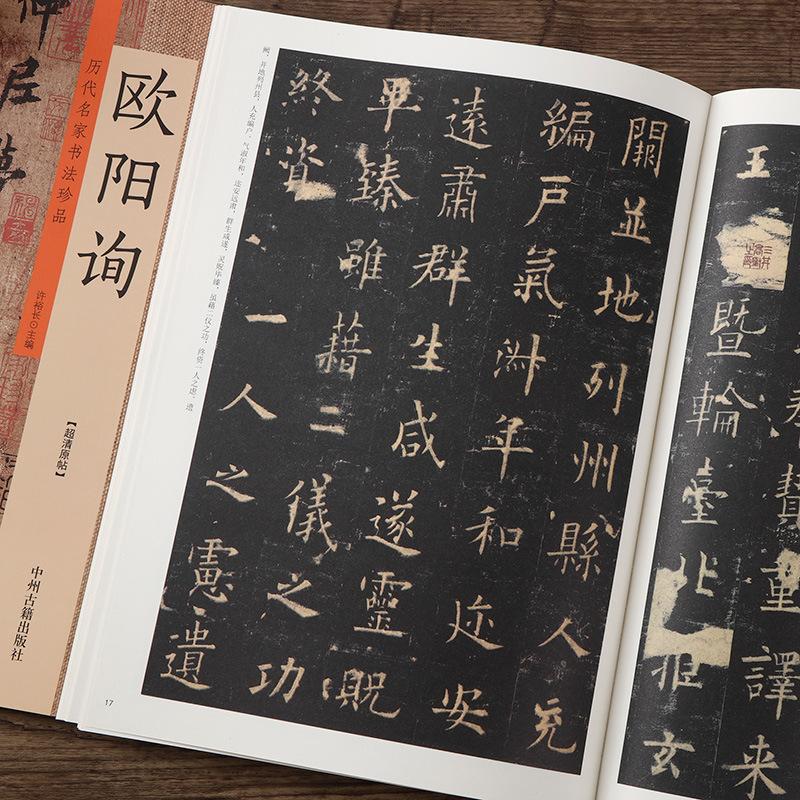 历代名家书法珍品
欧阳询
许裕长○主编
【超清原帖】
中州古籍出版社
贄重譯來
王暨輪臺北拒玄
闕並地列州縣人充
編戶氣淑年和迩安
遠肅群生咸遂靈貺
畢臻雖藉二儀之功
終資一人之慮遺
阙，并地列州县，人充编户，气淑年和，迩安远肃，群生咸遂，灵贶毕臻，虽藉二仪之功，终资一人之虑，遗
17